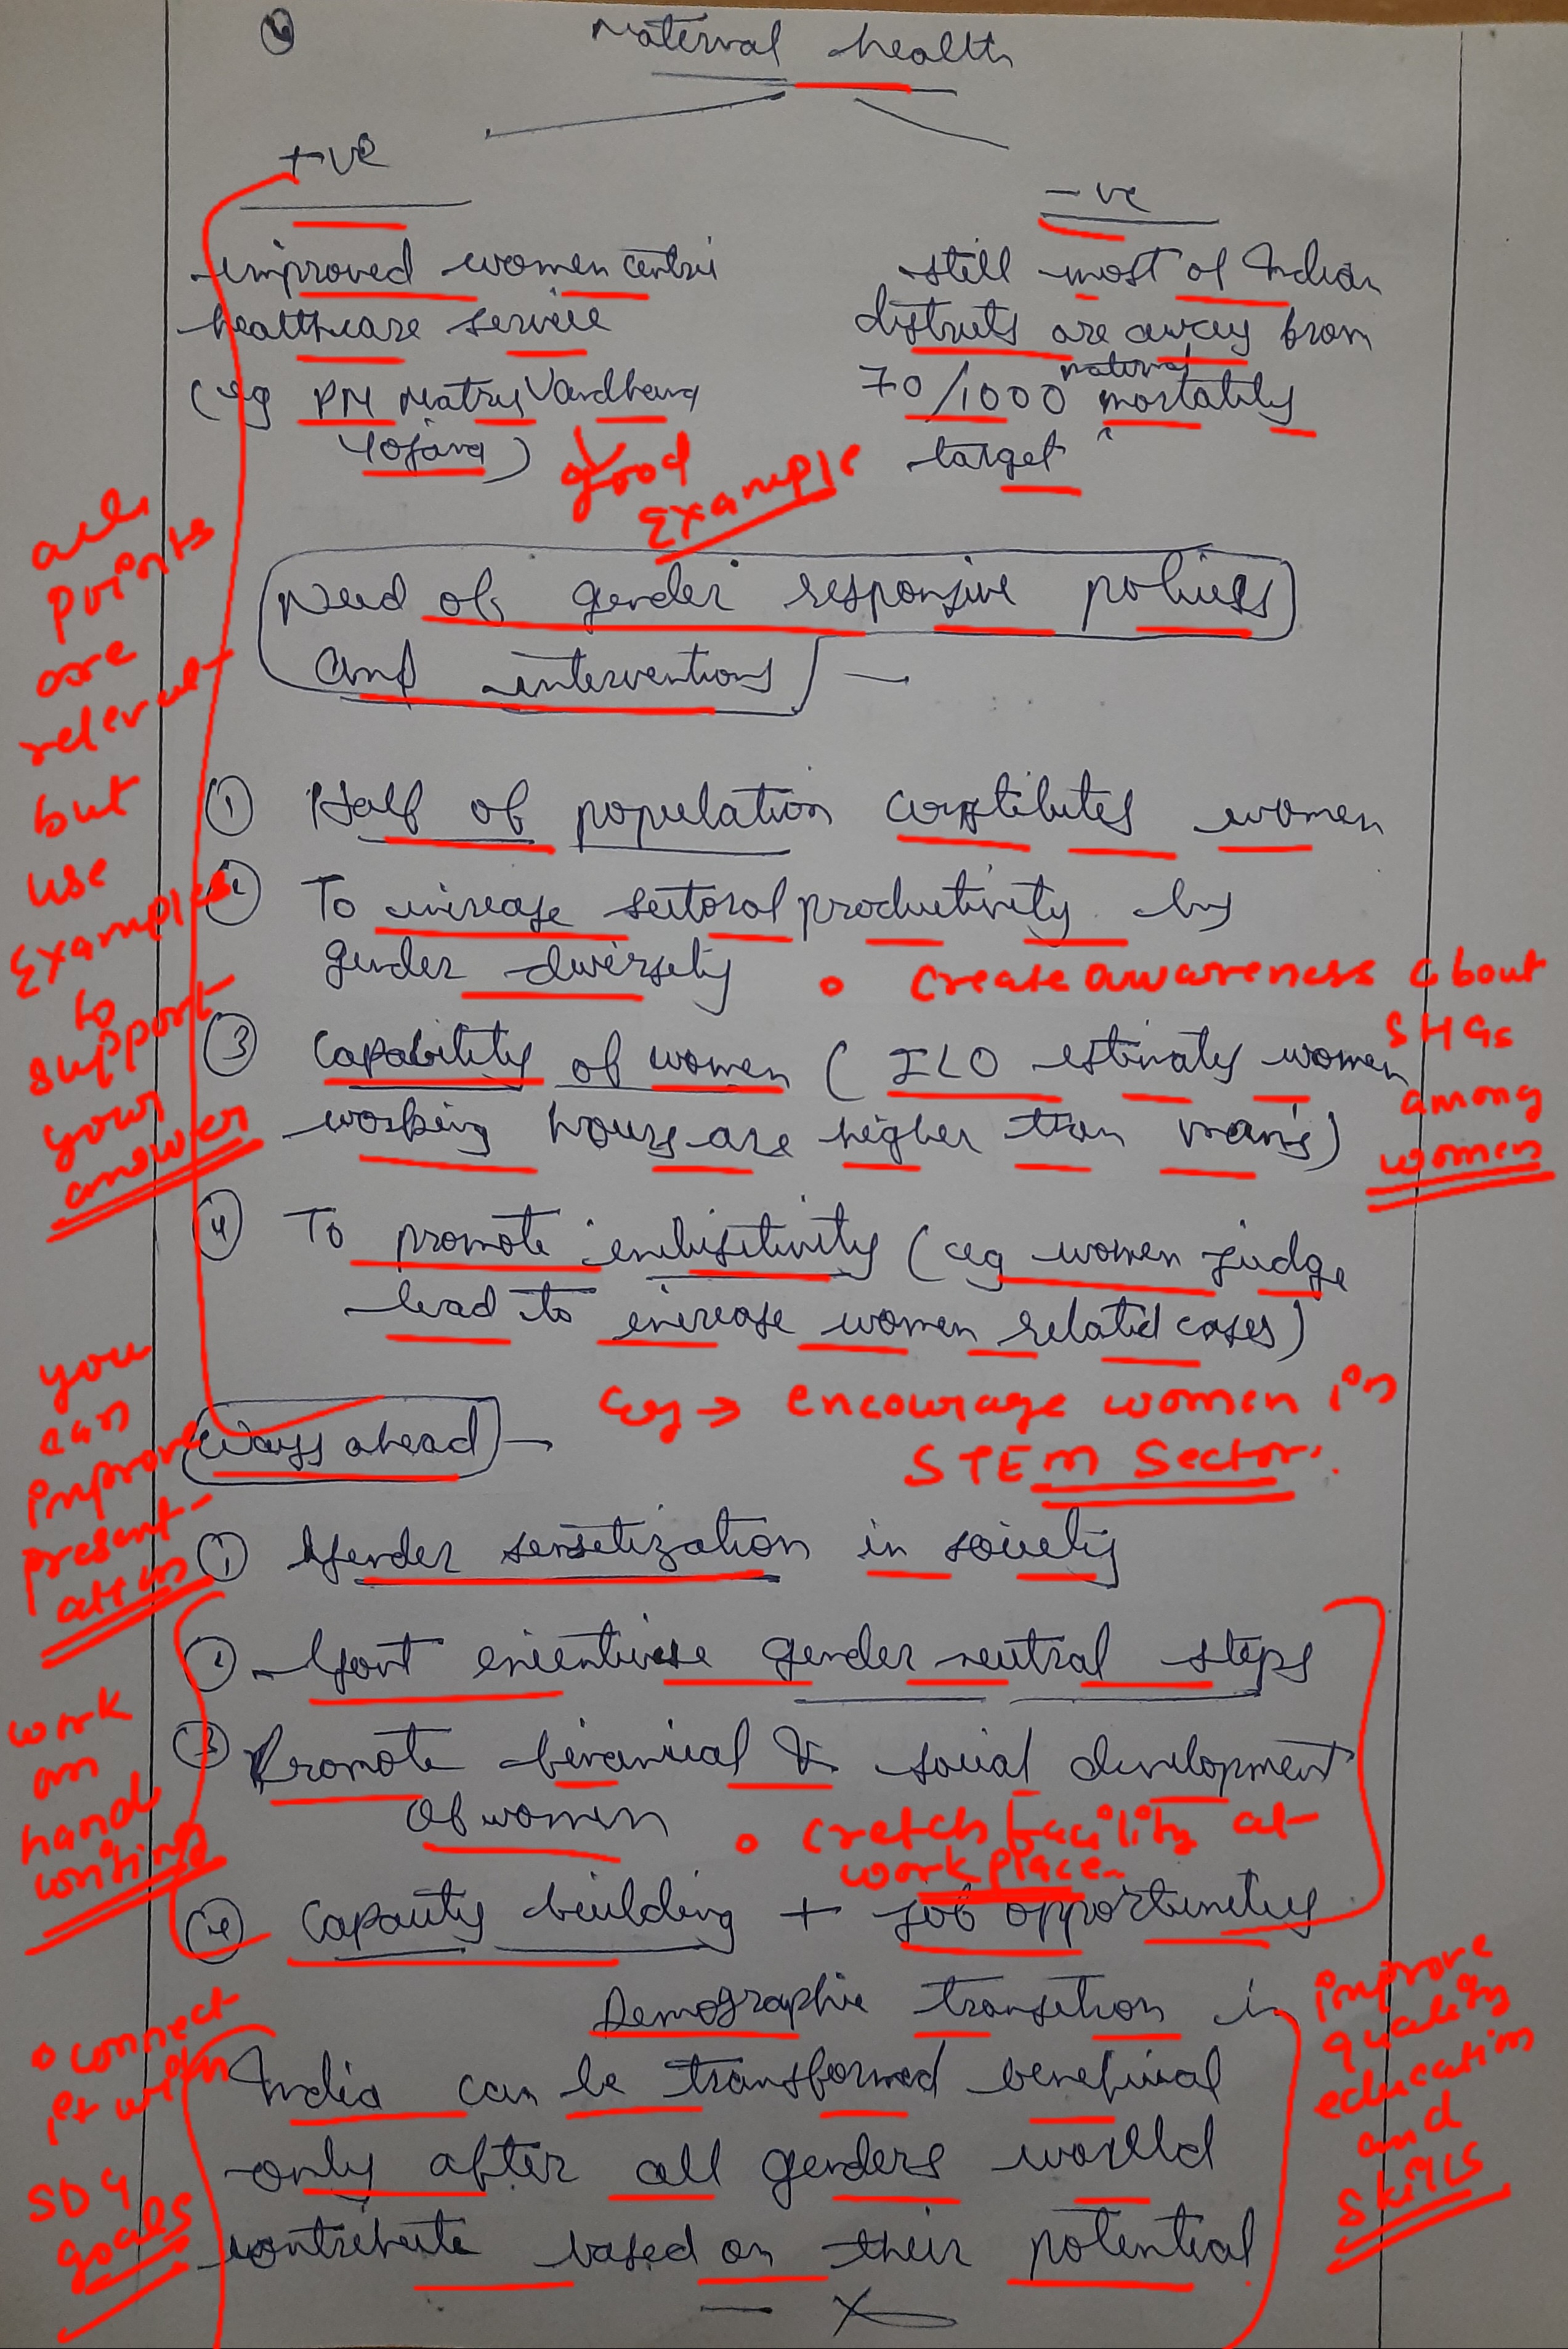 6
Maternal health
+ve
-ve
improved women centric
healthcare service
(eg PM Matru Vandhana
Yojana)
still most of Indian
districts are away from
70/1000 maternal mortality
target
good
Example
Need of gender responsive policies
and interventions —
① Half of population constitutes women
② To increase sectoral productivity by
gender diversity
• create awareness about
SHGs
among
women
③ Capability of women (ILO estimates women
working hours are higher than men's)
④ To promote inclusitivity (eg women judge
lead to increase women related cases)
all
points
are
relevant
but
use
Examples
to
support
your
answer
Eg → encourage women in
STEM Sector.
Ways ahead —
① Gender sensetization in society
② Govt incentivise gender neutral steps
③ Promote financial & social development
of women
• cretch facility at
workplace
④ Capacity building + job opportunities
you
can
improve
present-
ation
work
on
hand
writing
Demographic transition in
India can be transformed beneficial
only after all genders
contribute based on their potential
— x
• connect
it with
SDG
goals
improve
quality
education
and
skills